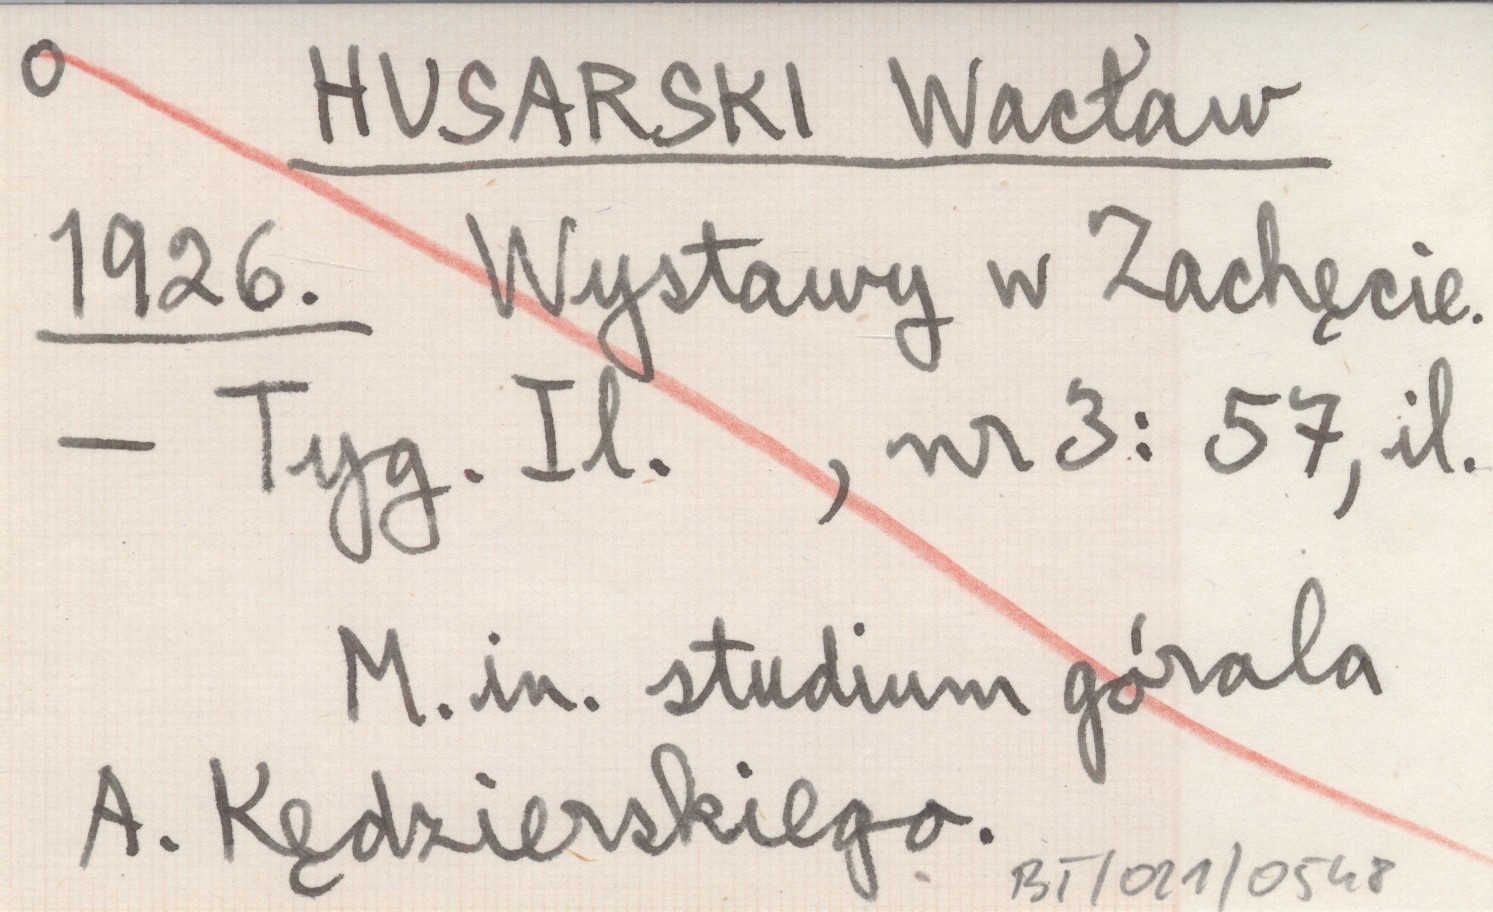 O HUSARSKI Wacław
1926. Wystawy w Zachęcie.
— Tyg. Il. , nr 3: 57, il.
M. in. studium górala
A. Kędzierskiego.
BT/021/0548